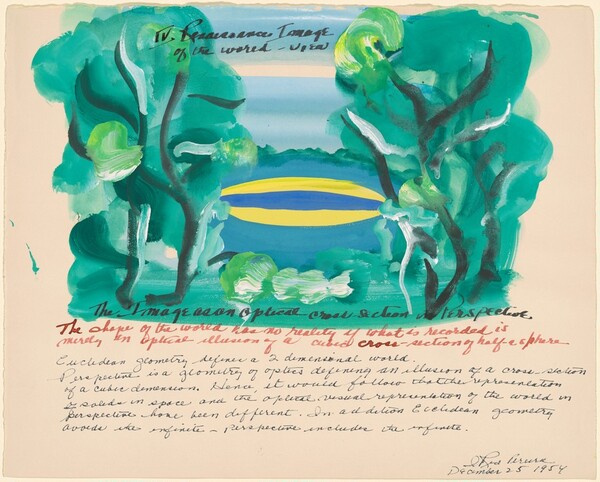 IV. Renaissance Image
of the world - view
The Image as an optical cross-section in Perspective
The shape of the world has no reality if what is recorded is
merely an optical illusion of a cubed cross-section of half a sphere
Euclidean geometry defines a 2 dimensional world.
Perspective is a geometry of optics defining an illusion of a cross-section
of a cubic dimension. Hence it would follow that the representation
of solids in space and the optical visual representation of the world in
perspective have been different. In addition Euclidean geometry
avoids the infinite - Perspective includes the infinite.
I. Rice Pereira
December 25 1954